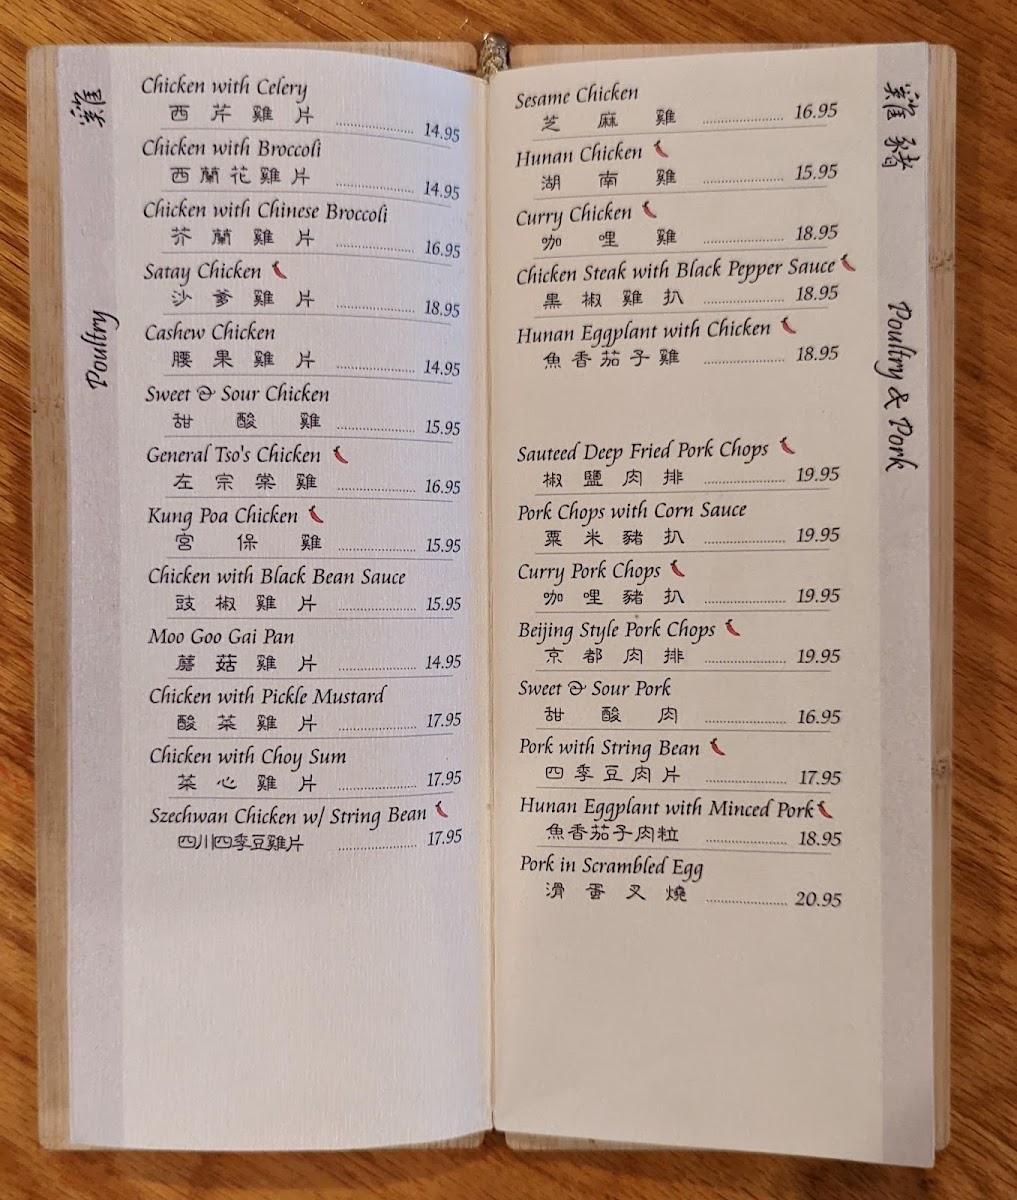 雞
Poultry
Chicken with Celery
西芹雞片 14.95
Chicken with Broccoli
西蘭花雞片 14.95
Chicken with Chinese Broccoli
芥蘭雞片 16.95
Satay Chicken
沙爹雞片 18.95
Cashew Chicken
腰果雞片 14.95
Sweet & Sour Chicken
甜酸雞 15.95
General Tso's Chicken
左宗棠雞 16.95
Kung Poa Chicken
宮保雞 15.95
Chicken with Black Bean Sauce
豉椒雞片 15.95
Moo Goo Gai Pan
蘑菇雞片 14.95
Chicken with Pickle Mustard
酸菜雞片 17.95
Chicken with Choy Sum
菜心雞片 17.95
Szechwan Chicken w/ String Bean
四川四季豆雞片 17.95
雞豬
Poultry & Pork
Sesame Chicken
芝麻雞 16.95
Hunan Chicken
湖南雞 15.95
Curry Chicken
咖哩雞 18.95
Chicken Steak with Black Pepper Sauce
黑椒雞扒 18.95
Hunan Eggplant with Chicken
魚香茄子雞 18.95
Sauteed Deep Fried Pork Chops
椒鹽肉排 19.95
Pork Chops with Corn Sauce
粟米豬扒 19.95
Curry Pork Chops
咖哩豬扒 19.95
Beijing Style Pork Chops
京都肉排 19.95
Sweet & Sour Pork
甜酸肉 16.95
Pork with String Bean
四季豆肉片 17.95
Hunan Eggplant with Minced Pork
魚香茄子肉粒 18.95
Pork in Scrambled Egg
滑蛋叉燒 20.95